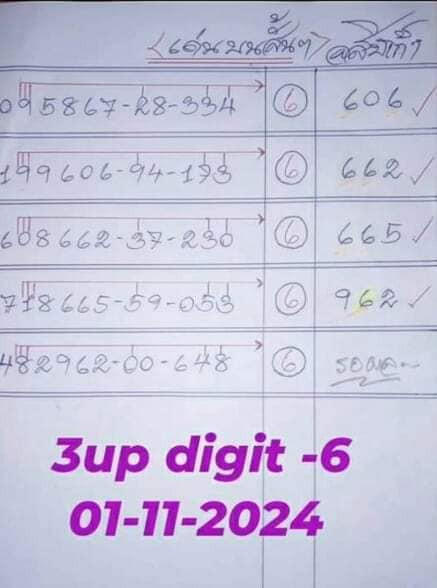 <เด่นบนสั้นๆ>
095867-28-334 6 606 ✓
199606-94-173 6 662 ✓
608662-37-230 6 665 ✓
718665-59-053 6 962 ✓
482962-00-648 6 รอผล
3up digit -6
01-11-2024